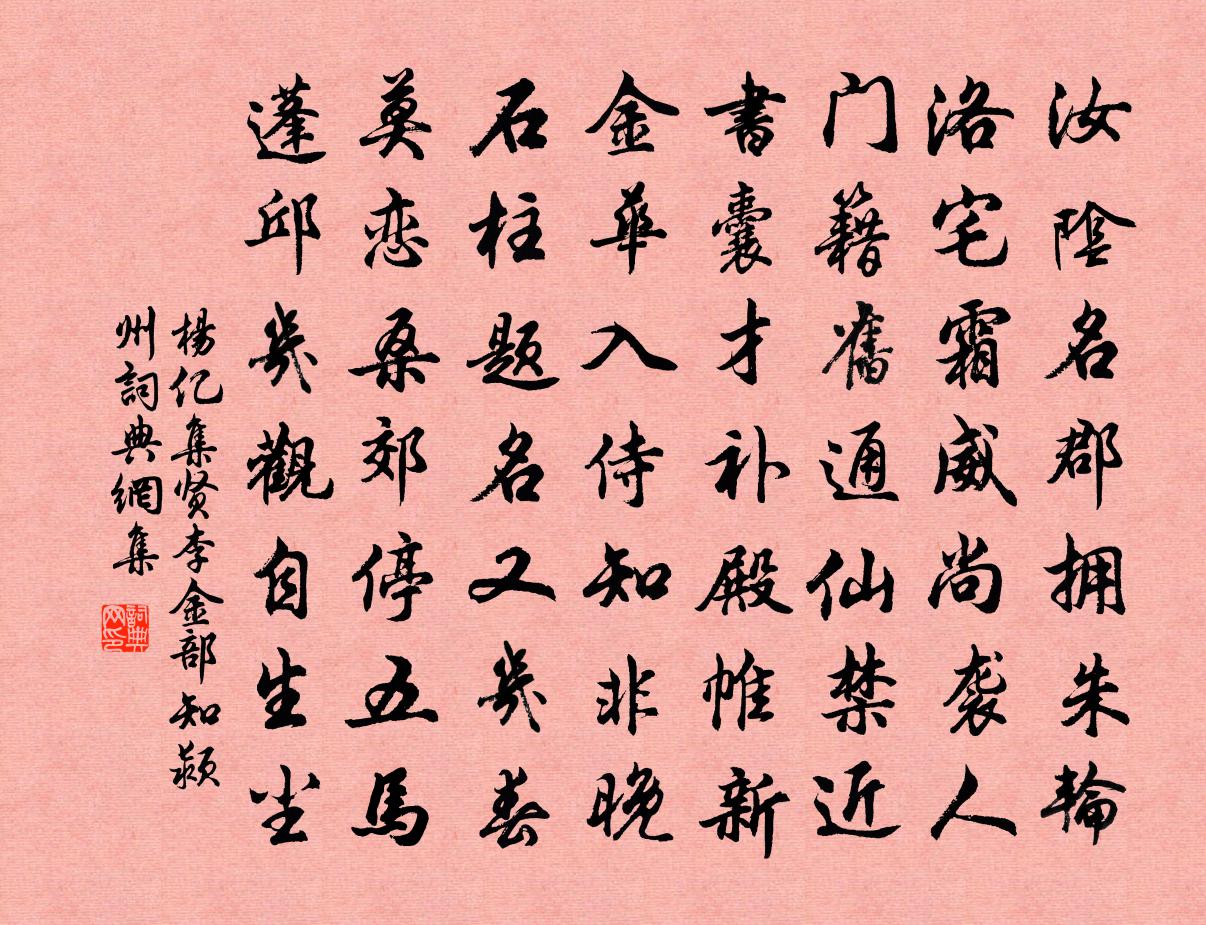 汝陰名郡拥朱輪
洛宅霜威尚袭人
门籍舊通仙禁近
書囊才补殿帷新
金華入侍知非晚
石柱题名又幾春
莫恋桑郊停五馬
蓬邱幾觀自生尘
楊亿集贤李金部知颍
州詞典網集
詞典网印